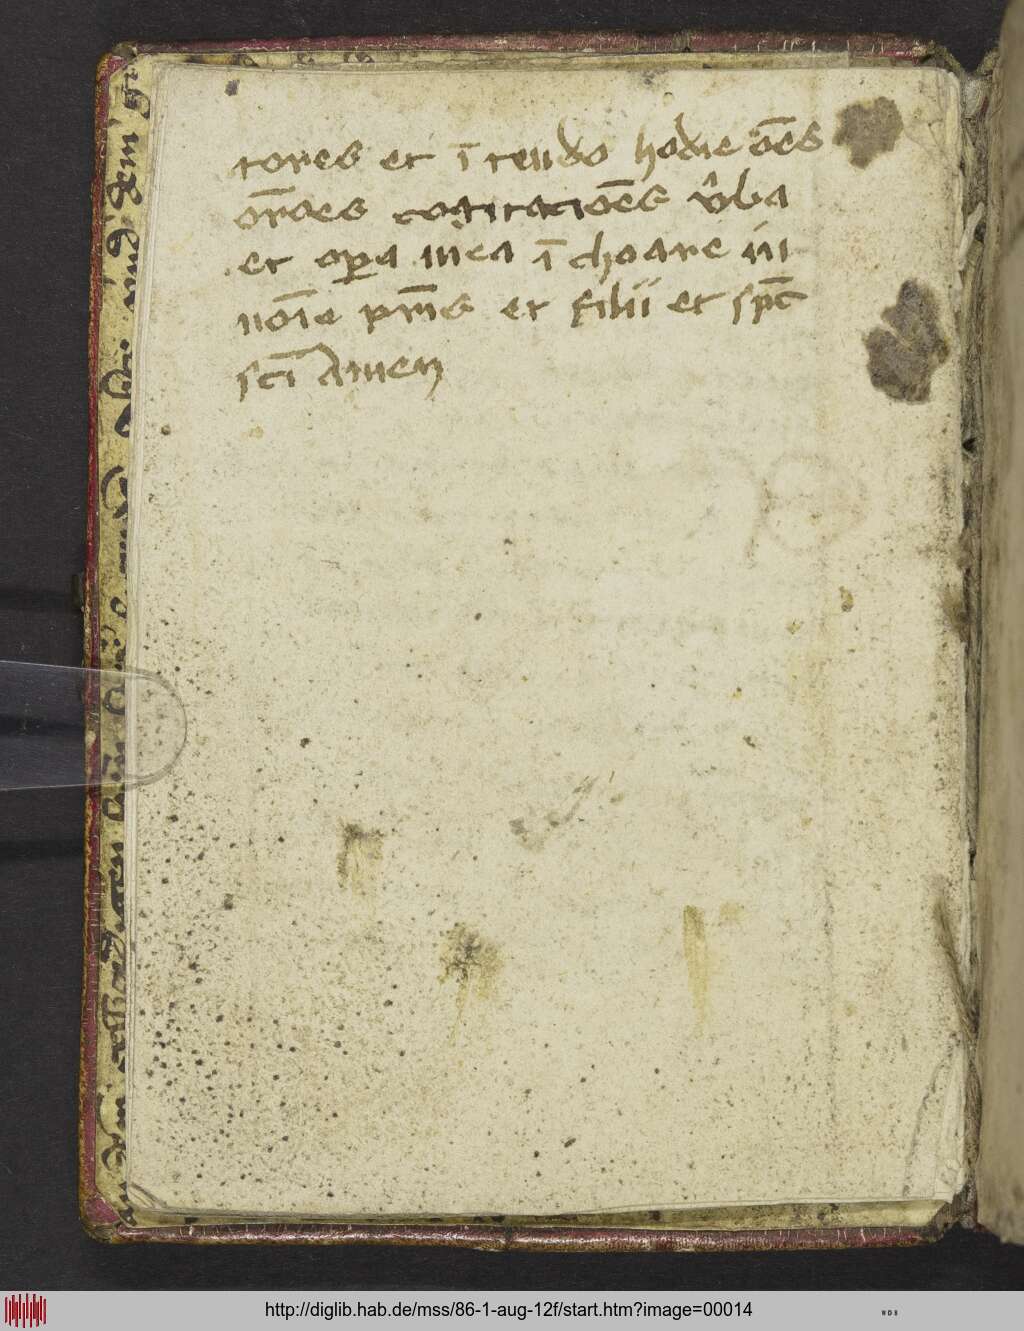 tores et ī tendo hodie oēs
orōes cogitaciōes v̂ba
et oꝑa mea ī choare in
noīe prīs et filii et spc̄
sc̄i Amen
http://diglib.hab.de/mss/86-1-aug-12f/start.htm?image=00014